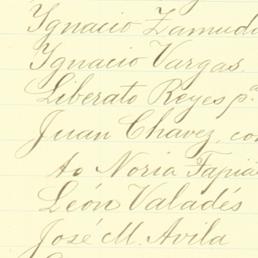 Ygnacio Zamudi
Ygnacio Vargas.
Liberato Reyes pª
Juan Chavez, con
to Noria Tapia
León Valadés
José M. Avila